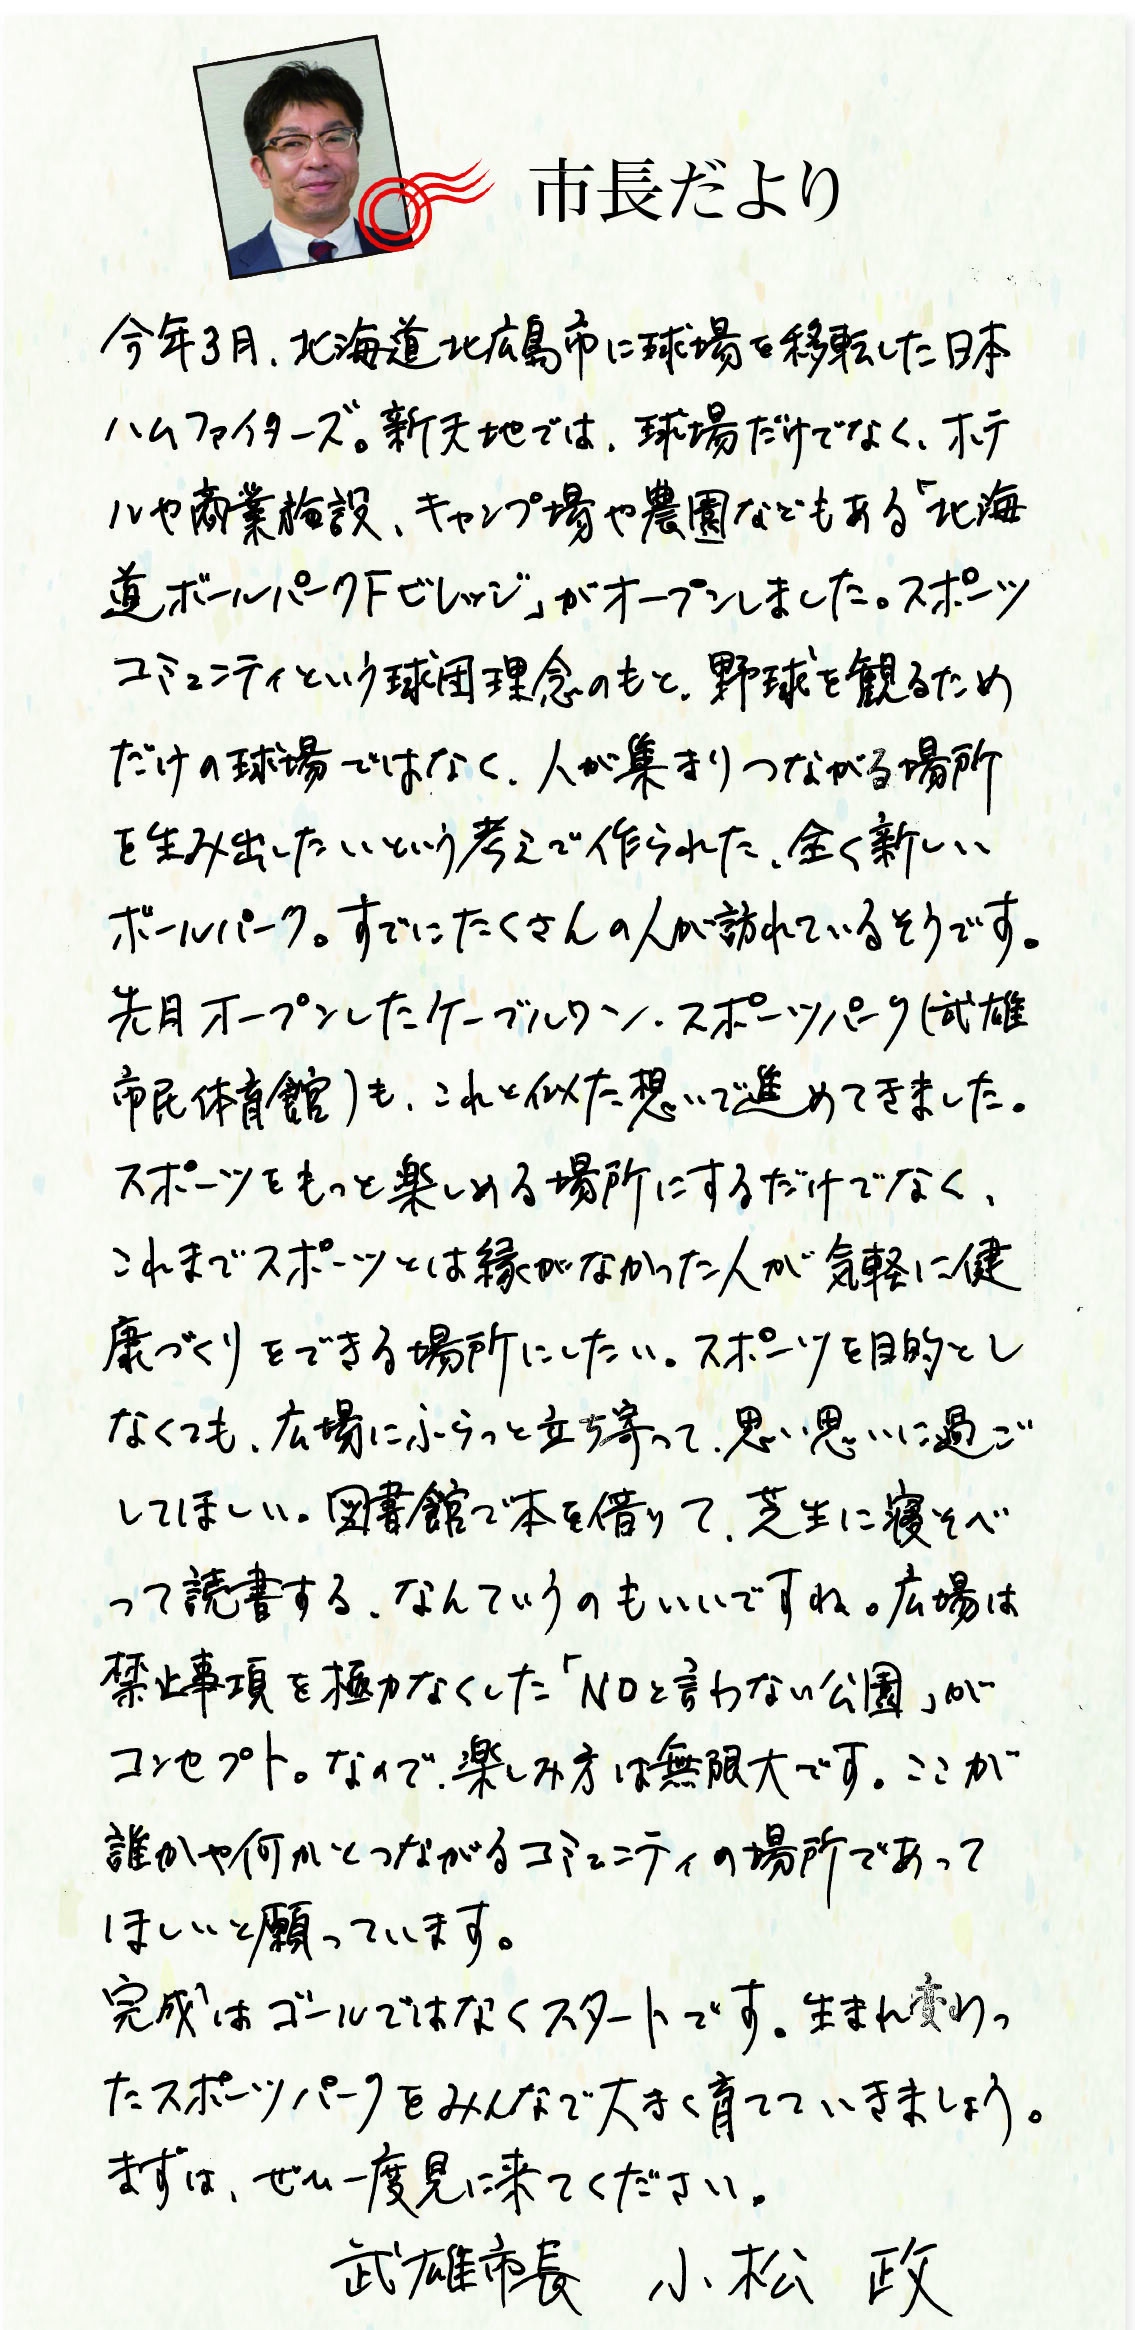 市長だより
今年3月、北海道北広島市に球場を移転した日本
ハムファイターズ。新天地では、球場だけでなく、ホテ
ルや商業施設、キャンプ場や農園などもある「北海
道ボールパークFビレッジ」がオープンしました。スポーツ
コミュニティという球団理念のもと、野球を観るため
だけの球場ではなく、人が集まりつながる場所
を生み出したいという考えで作られた、全く新しい
ボールパーク。すでにたくさんの人が訪れているそうです。
先月オープンしたケーブルワン・スポーツパーク(武雄
市民体育館)も、これと似た想いで進めてきました。
スポーツをもっと楽しめる場所にするだけでなく、
これまでスポーツとは縁がなかった人が気軽に健
康づくりをできる場所にしたい。スポーツを目的とし
なくても、広場にふらっと立ち寄って、思い思いに過ご
してほしい。図書館で本を借りて、芝生に寝そべ
って読書する、なんていうのもいいですね。広場は
禁止事項を極力なくした「NOと言わない公園」が
コンセプト。なので、楽しみ方は無限大です。ここが
誰かや何かとつながるコミュニティの場所であって
ほしいと願っています。
完成はゴールではなくスタートです。生まれ変わっ
たスポーツパークをみんなで大きく育てていきましょう。
まずは、ぜひ一度見に来てください。
武雄市長 小松 政